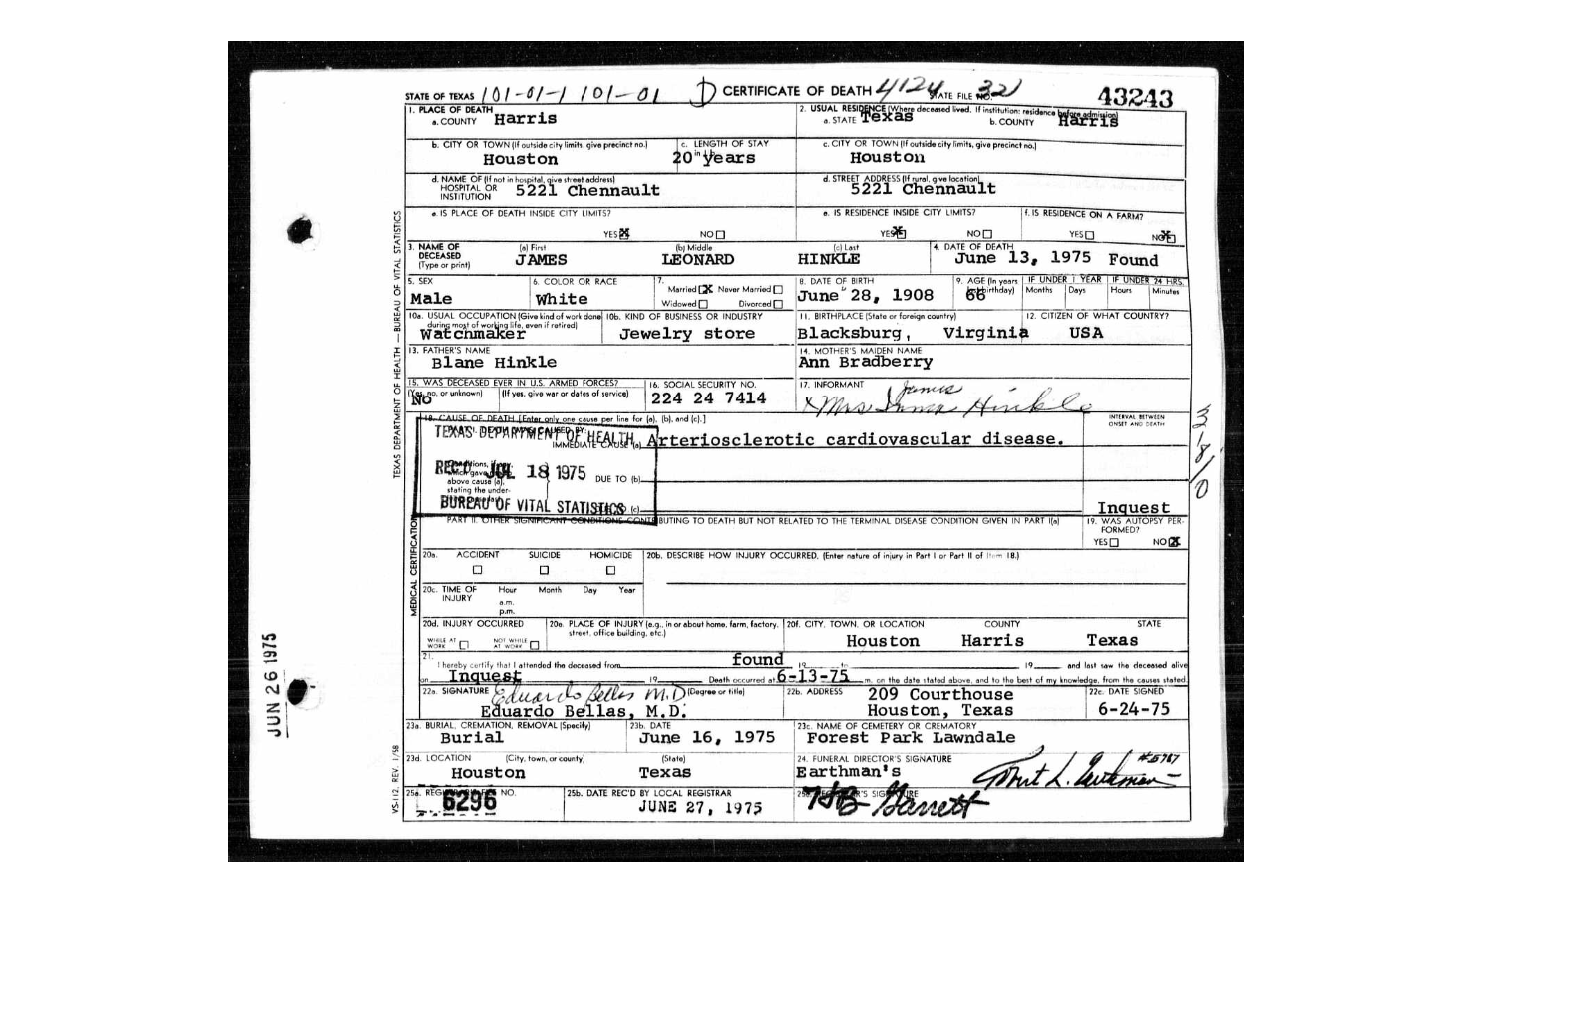 STATE OF TEXAS 101-01-1 101-01 D CERTIFICATE OF DEATH 4124 STATE FILE NO. 321 43243
1. PLACE OF DEATH
a. COUNTY Harris
2. USUAL RESIDENCE (Where deceased lived. If institution: residence before admission)
a. STATE Texas b. COUNTY Harris
b. CITY OR TOWN (If outside city limits, give precinct no.) c. LENGTH OF STAY
Houston 20 years
c. CITY OR TOWN (If outside city limits, give precinct no.)
Houston
d. NAME OF (If not in hospital, give street address)
HOSPITAL OR
INSTITUTION 5221 Chennault
d. STREET ADDRESS (If rural, give location)
5221 Chennault
e. IS PLACE OF DEATH INSIDE CITY LIMITS?
YES X NO
e. IS RESIDENCE INSIDE CITY LIMITS?
YES X NO
f. IS RESIDENCE ON A FARM?
YES NO X
3. NAME OF DECEASED (Type or print) (a) First (b) Middle (c) Last
JAMES LEONARD HINKLE
4. DATE OF DEATH
June 13, 1975 Found
5. SEX
Male
6. COLOR OR RACE
White
7.
Married X Never Married
Widowed Divorced
8. DATE OF BIRTH
June 28, 1908
9. AGE (In years last birthday)
66
IF UNDER 1 YEAR IF UNDER 24 HRS.
Months Days Hours Minutes
10a. USUAL OCCUPATION (Give kind of work done during most of working life, even if retired)
Watchmaker
10b. KIND OF BUSINESS OR INDUSTRY
Jewelry store
11. BIRTHPLACE (State or foreign country)
Blacksburg, Virginia
12. CITIZEN OF WHAT COUNTRY?
USA
13. FATHER'S NAME
Blane Hinkle
14. MOTHER'S MAIDEN NAME
Ann Bradberry
15. WAS DECEASED EVER IN U.S. ARMED FORCES?
(Yes, no, or unknown) (If yes, give war or dates of service)
No
16. SOCIAL SECURITY NO.
224 24 7414
17. INFORMANT
James
X Mrs Hinkle
18. CAUSE OF DEATH [Enter only one cause per line for (a), (b), and (c).]
INTERVAL BETWEEN
ONSET AND DEATH
TEXAS DEPARTMENT OF HEALTH
IMMEDIATE CAUSE (a) Arteriosclerotic cardiovascular disease.
REC'D JUL 18 1975
Conditions, if any,
which gave
above cause (a),
stating the under-
DUE TO (b)
BUREAU OF VITAL STATISTICS
(c)
Inquest
PART II. OTHER SIGNIFICANT CONDITIONS CONTRIBUTING TO DEATH BUT NOT RELATED TO THE TERMINAL DISEASE CONDITION GIVEN IN PART I(a)
19. WAS AUTOPSY PER-
FORMED?
YES NO X
20a. ACCIDENT SUICIDE HOMICIDE
20b. DESCRIBE HOW INJURY OCCURRED. (Enter nature of injury in Part I or Part II of Item 18.)
20c. TIME OF INJURY Hour Month Day Year
a.m.
p.m.
20d. INJURY OCCURRED
WHILE AT WORK NOT WHILE AT WORK
20e. PLACE OF INJURY (e.g., in or about home, farm, factory, street, office building, etc.)
20f. CITY, TOWN, OR LOCATION COUNTY STATE
Houston Harris Texas
21.
I hereby certify that I attended the deceased from found 19 to 19 and last saw the deceased alive
on Inquest 19 Death occurred at 6-13-75 m. on the date stated above, and to the best of my knowledge, from the causes stated.
22a. SIGNATURE Eduardo Bellas M.D (Degree or title)
Eduardo Bellas, M.D.
22b. ADDRESS 209 Courthouse
Houston, Texas
22c. DATE SIGNED
6-24-75
23a. BURIAL, CREMATION, REMOVAL (Specify)
Burial
23b. DATE
June 16, 1975
23c. NAME OF CEMETERY OR CREMATORY
Forest Park Lawndale
23d. LOCATION (City, town, or county) (State)
Houston Texas
24. FUNERAL DIRECTOR'S SIGNATURE
Earthman's
25a. REGISTRAR'S FILE NO.
6296
25b. DATE REC'D BY LOCAL REGISTRAR
JUNE 27, 1975
25c. REGISTRAR'S SIGNATURE
Garrett
TEXAS DEPARTMENT OF HEALTH — BUREAU OF VITAL STATISTICS
MEDICAL CERTIFICATION
VS-112, REV. 1/58
JUN 26 1975